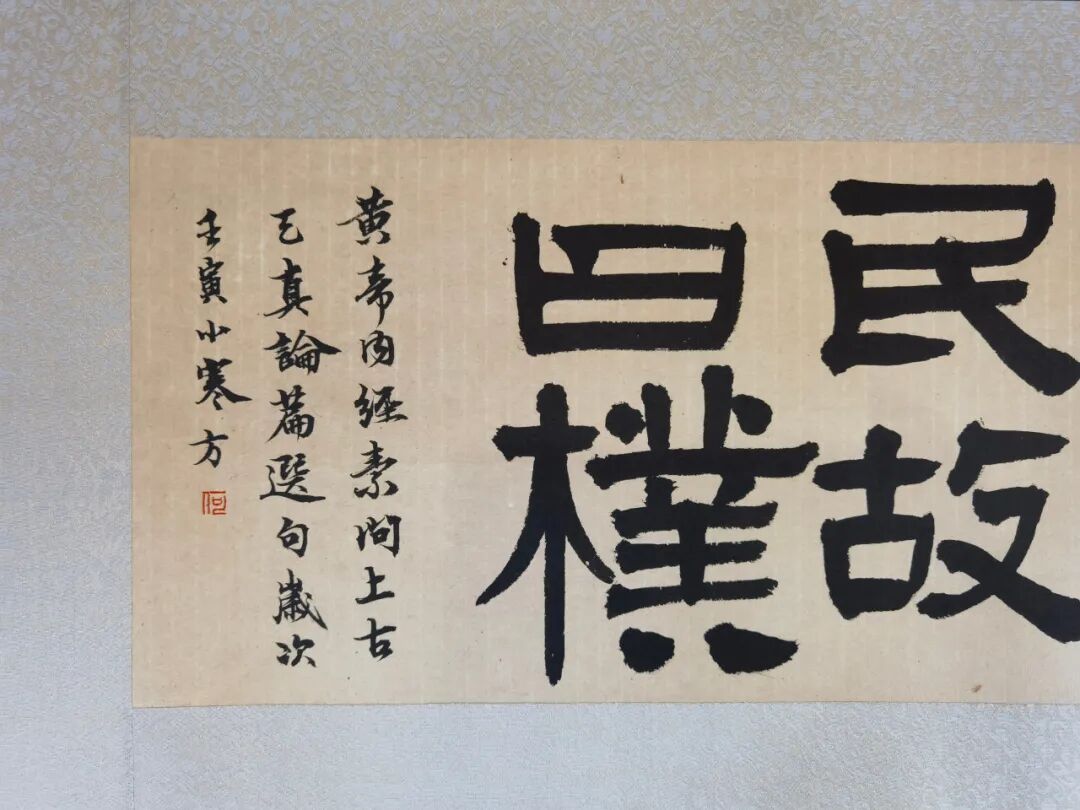 民故
曰樸
黄帝内經素問上古
天真論篇選句歲次
壬寅小寒方